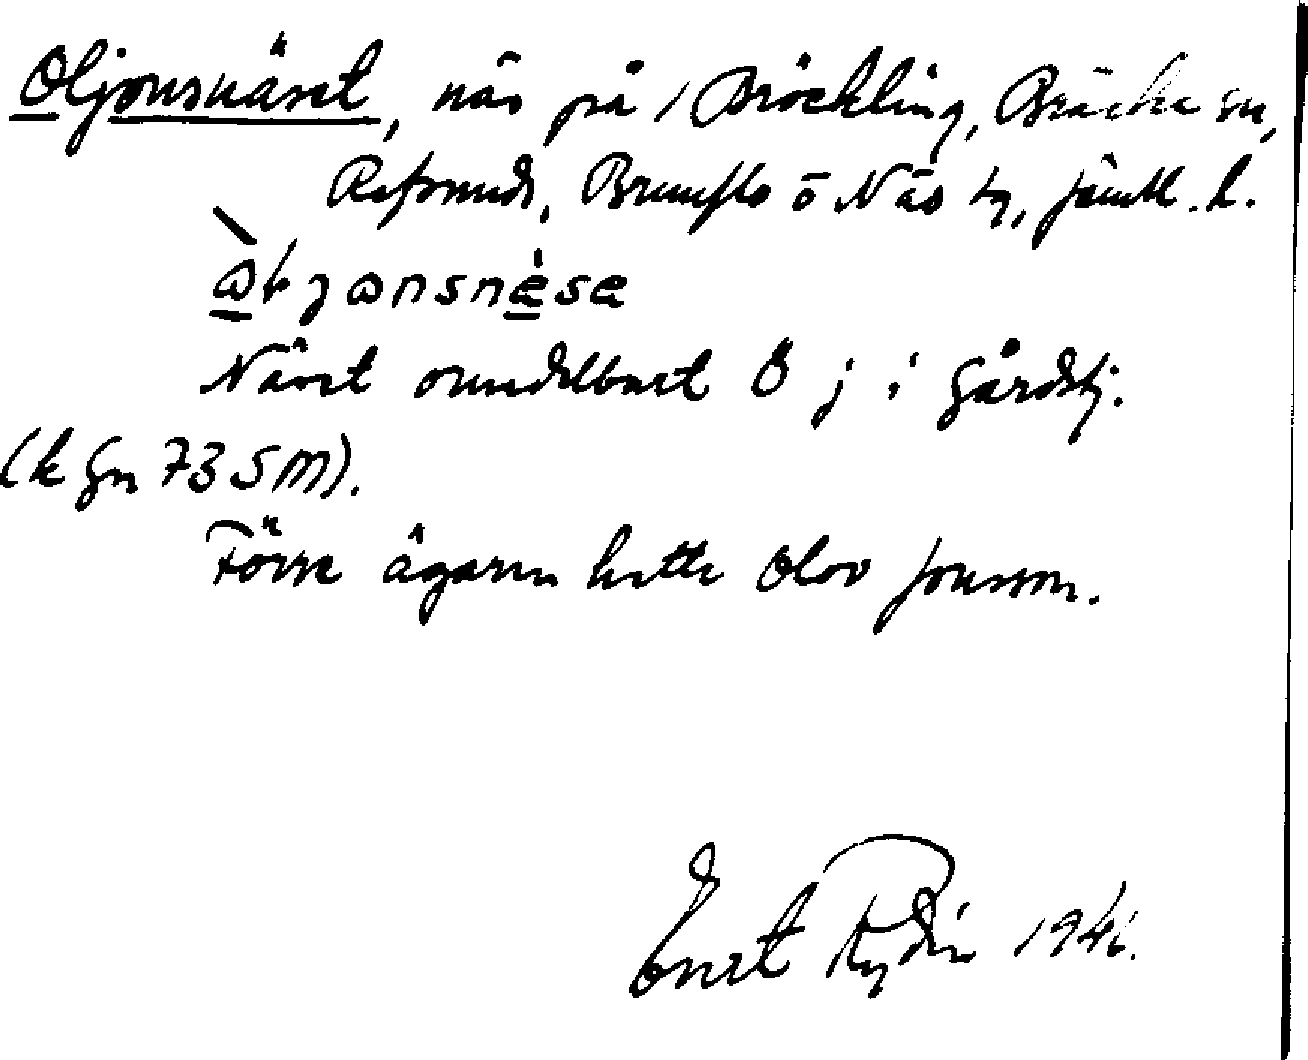 Oljonsnäset, näs på 1 Bröckling, Bräcke sn,
Refsunds, Brunflo o Näs tg, Jämtl. l.
Näset omedelbart Ö j i Gårdstj.
(k Gn 735 M).
Förre ägaren hette Olov Jonsson.
Ernst Rydin 1941.